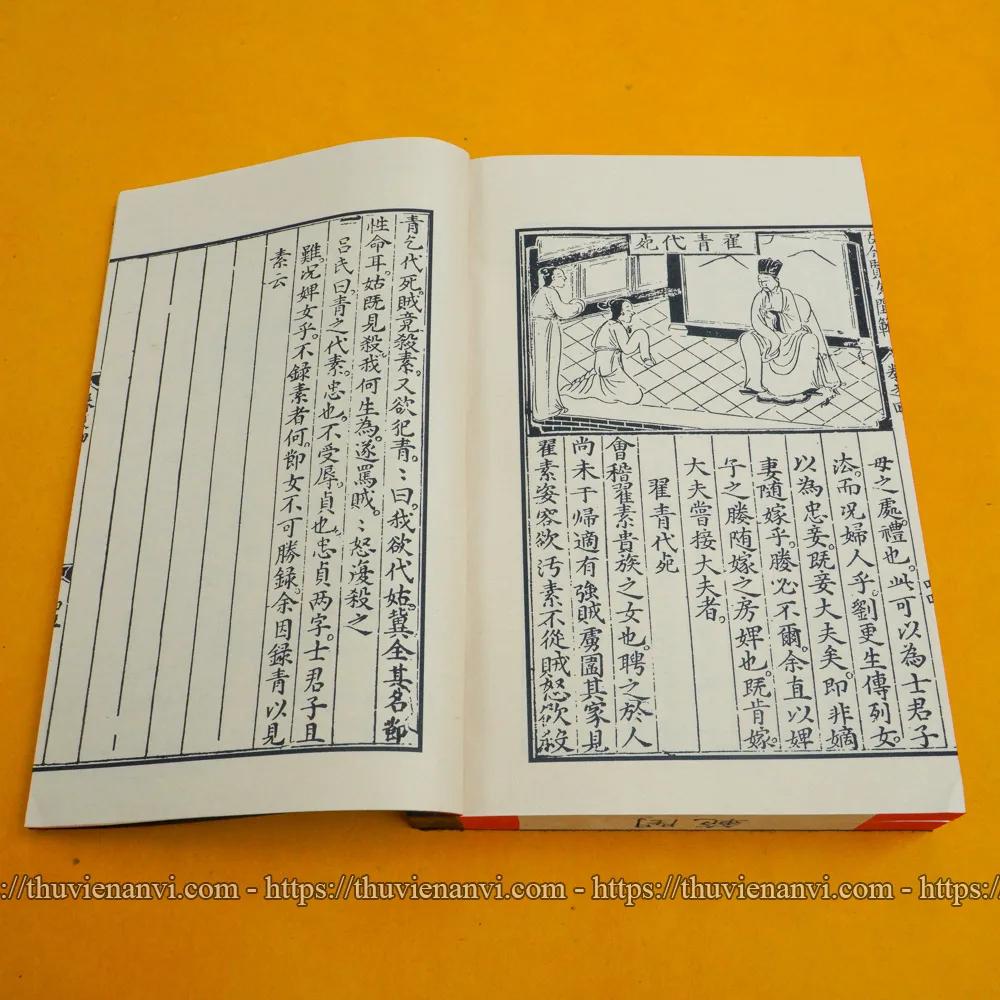 翟青代死
卷之四
母之處。禮也。此可以為士君子
法。而况婦人乎。劉更生傳列女。
以為忠妾。既妾大夫矣。即非嫡
妻隨嫁乎。媵必不爾。余直以婢
子之媵隨嫁之房婢也。既肯嫁。
大夫嘗接大夫者。
翟青代死
會稽翟素貴族之女也。聘之於人
尚未于歸適有強賊虜圖其家見
翟素姿容欲汚素不從賊怒欲殺
青乞代死。賊竟殺素。又欲犯青。〻曰。我欲代姑。冀全其名節
性命耳。姑既見殺。我何生為。遂罵賊。〻怒復殺之
呂氏曰。青之代素。忠也。不受辱。貞也。忠貞两字。士君子且
難。况婢女乎。不録素者何。節女不可勝録。余因録青以見
素云
://thuvienanvi.com - https://thuvienanvi.com - https://thuvienanvi.com - https://